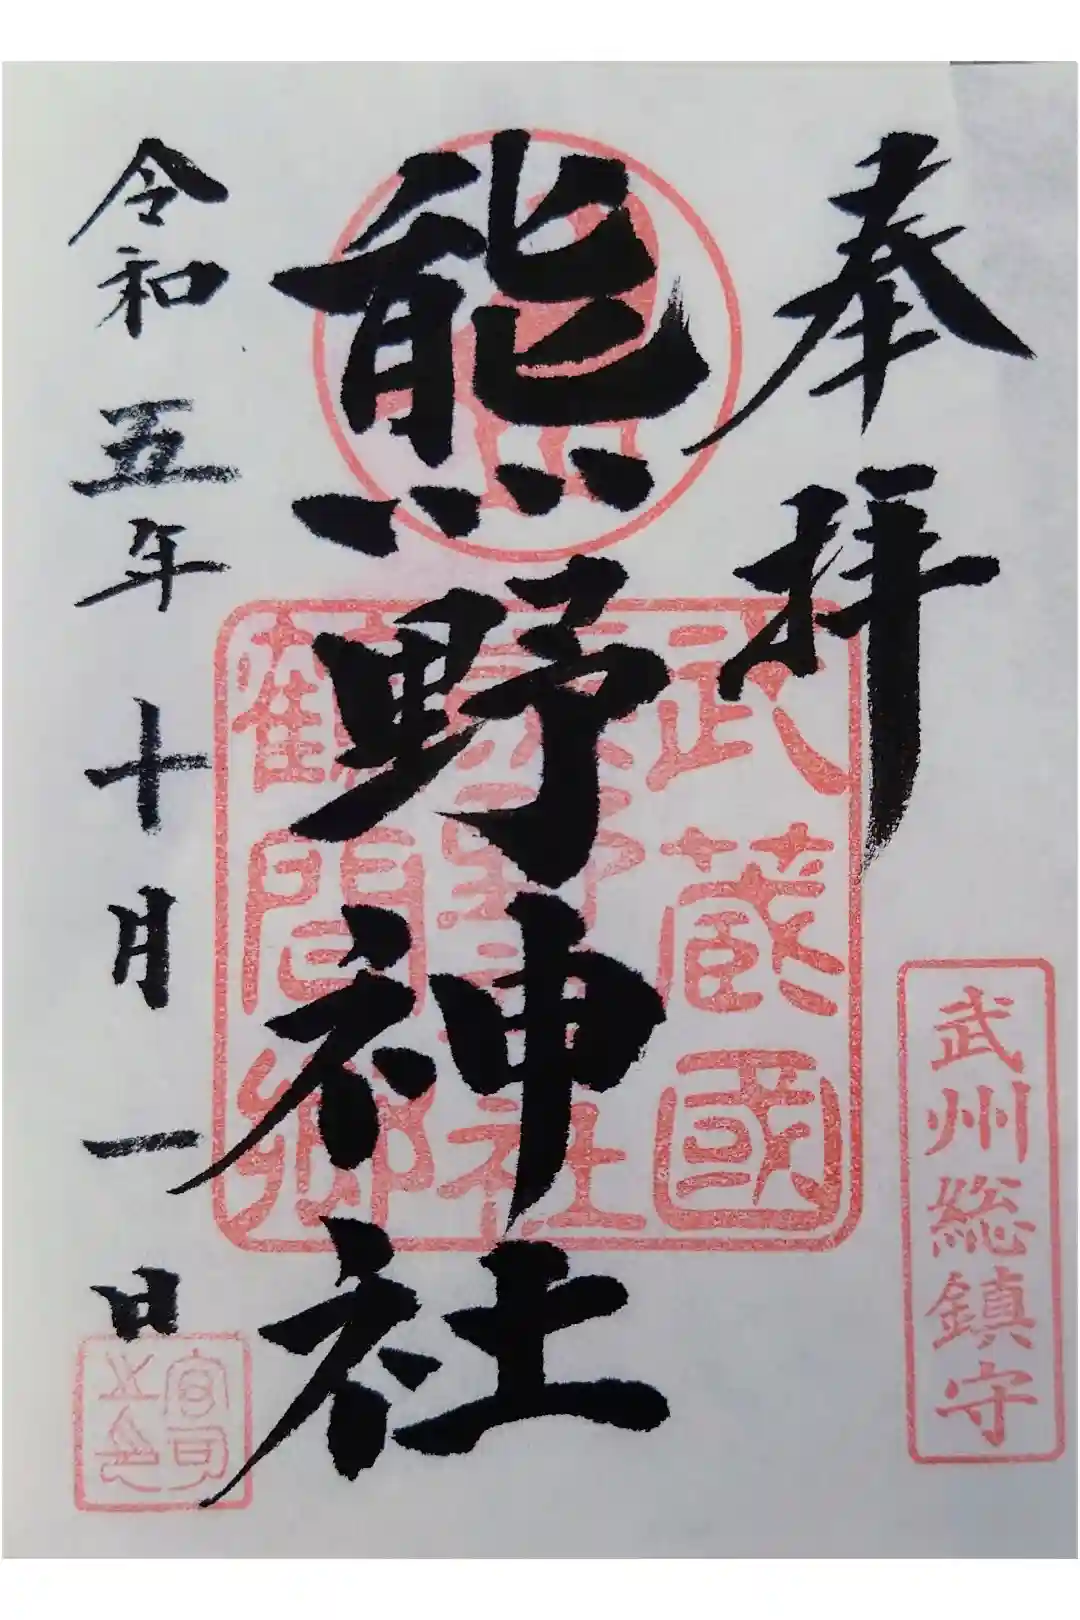 奉拝
武州総鎮守
熊野神社
武蔵國
熊野神社
鶴間郷
令和五年十月一日
宮司之印